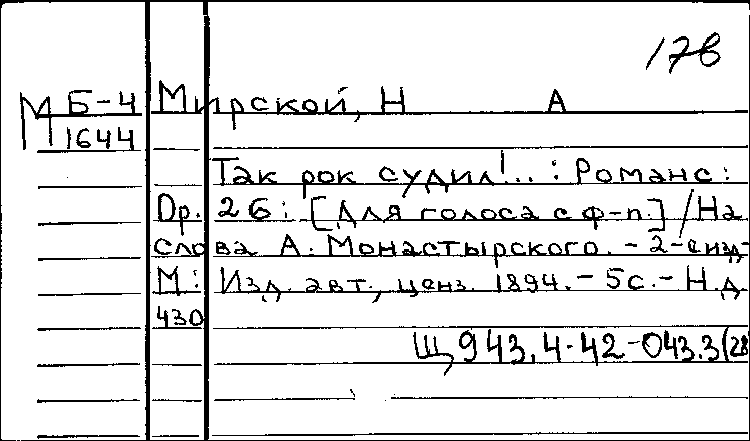 178
М Б-4 Мирской, Н А
1644
Так рок судил!..: Романс:
Ор. 26: [Для голоса с ф-п.] / На
слова А. Монастырского. - 2-е изд-
М: Изд. авт., ценз. 1894. - 5с. - Н.д.
430
Щ943.4-42-043.3(28